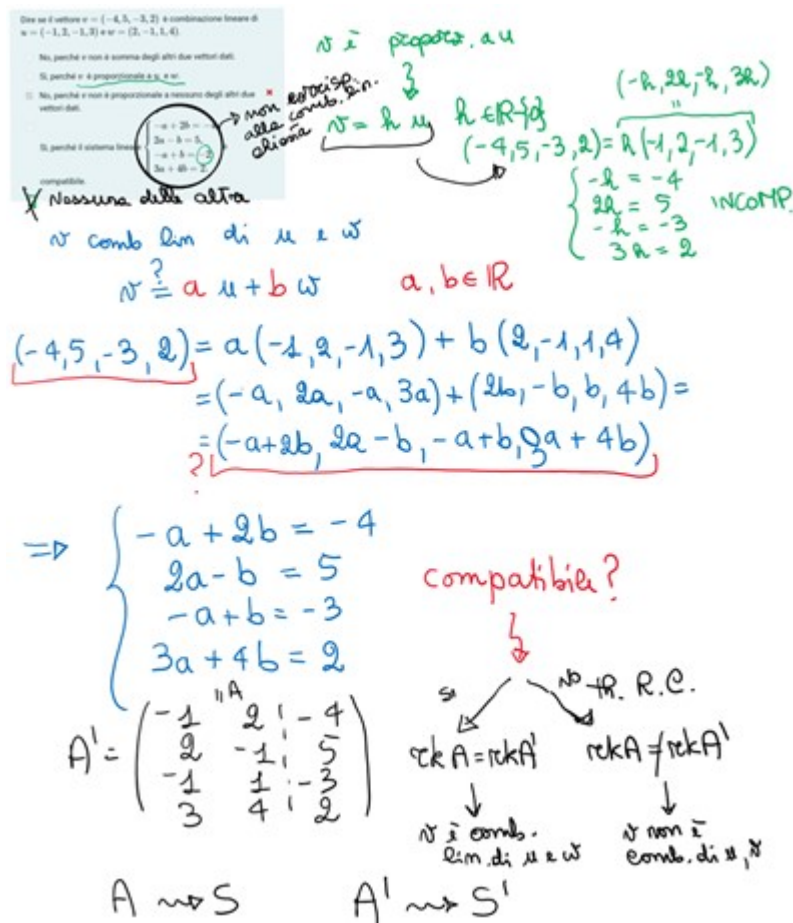 Dire se il vettore v = (−4, 5, −3, 2) è combinazione lineare di
u = (−1, 2, −1, 3) e w = (2, −1, 1, 4).
No, perché v non è somma degli altri due vettori dati.
Sì, perché v è proporzionale a u e w.
No, perché v non è proporzionale a nessuno degli altri due
vettori dati.
Sì, perché il sistema lineare
−a + 2b = −
2a − b = 5,
−a + b = −2
3a + 4b = 2,
compatibile.
non corrisp.
alla comb. lin.
Nessuna delle altre
v è proporz. a u
v = h u h ∈ R-{0}
(-h, 2h, -h, 3h)
"
(-4, 5, -3, 2) = h(-1, 2, -1, 3)
-h = -4
2h = 5
-h = -3
3h = 2
INCOMP.
v comb lin di u e w
v ?= a u + b w a, b ∈ R
(-4, 5, -3, 2) = a (-1, 2, -1, 3) + b (2, -1, 1, 4)
= (-a, 2a, -a, 3a) + (2b, -b, b, 4b) =
= (-a+2b, 2a-b, -a+b, 3a+4b)
?
⇒ -a + 2b = -4
2a - b = 5
-a + b = -3
3a + 4b = 2
compatibile?
si no th. R.C.
"A
A' = ( -1 2 ¦ -4
2 -1 ¦ 5
-1 1 ¦ -3
3 4 ¦ 2 )
rk A = rk A' rk A ≠ rk A'
v è comb.
lin. di u e w
v non è
comb. di u,
A ⇝ S A' ⇝ S'